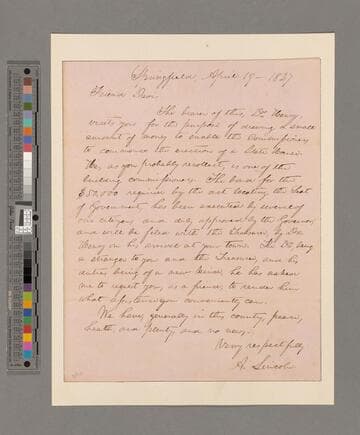 Springfield, April 19 - 1837
Friend
The bearer of this, Dr. Henry,
visits you for the purpose of drawing a small
amount of money to enable the Commissioners
to commence the erection of a State House.
He, as you probably recollect, is one of the
building commissioners. The bond for the
$50,000 required by the act locating the Seat
of Government has been executed by several of
our citizens, and duly approved by the Governor,
and will be filed with the Treasurer by Dr.
Henry on his arrival at your town. The Dr. being
a stranger to you and the Treasurer, and his
duties being of a new kind, he has asked
me to request you, as a friend, to render him
what assistance you conveniently can.
We have, generally in this country, peace,
health, and plenty, and no news.
Very respectfully
A. Lincoln